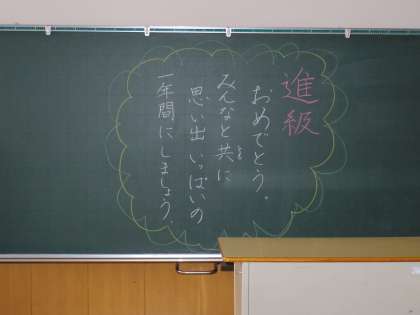 進級
おめでとう。
みんなと共に
とも
思い出いっぱいの
一年間にしましょう。